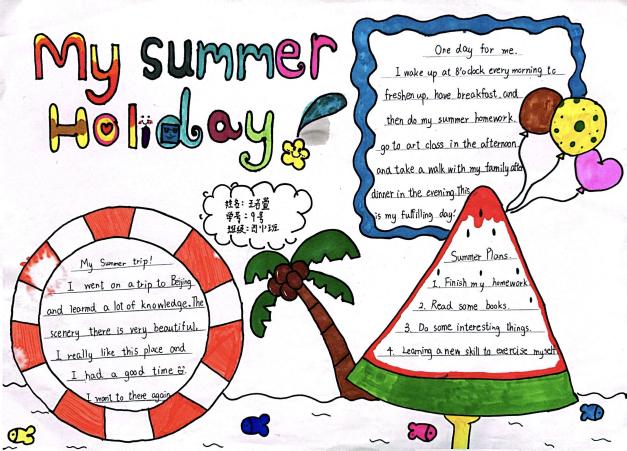 My summer
Holiday
One day for me.
I wake up at 8'o clock every morning to
freshen up, have breakfast, and
then do my summer homework.
go to art class in the afternoon
and take a walk with my family after
dinner in the evening. This
is my fulfilling day!
姓名:王
学号:9号
班级:四 班
My Summer trip!
I went on a trip to Beijing
and learnd a lot of knowledge. The
scenery there is very beautiful.
I really like this place and
I had a good time
I want to there again
Summer Plans.
1. Finish my homework
2. Read some books.
3. Do some interesting things.
4. Learning a new skill to exercise myself